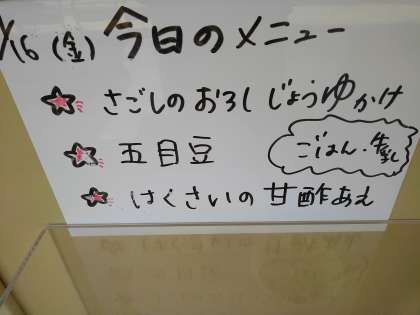 /16 (金) 今日のメニュー
さごしのおろしじょうゆかけ
五目豆
ごはん・牛乳
はくさいの甘酢あえ